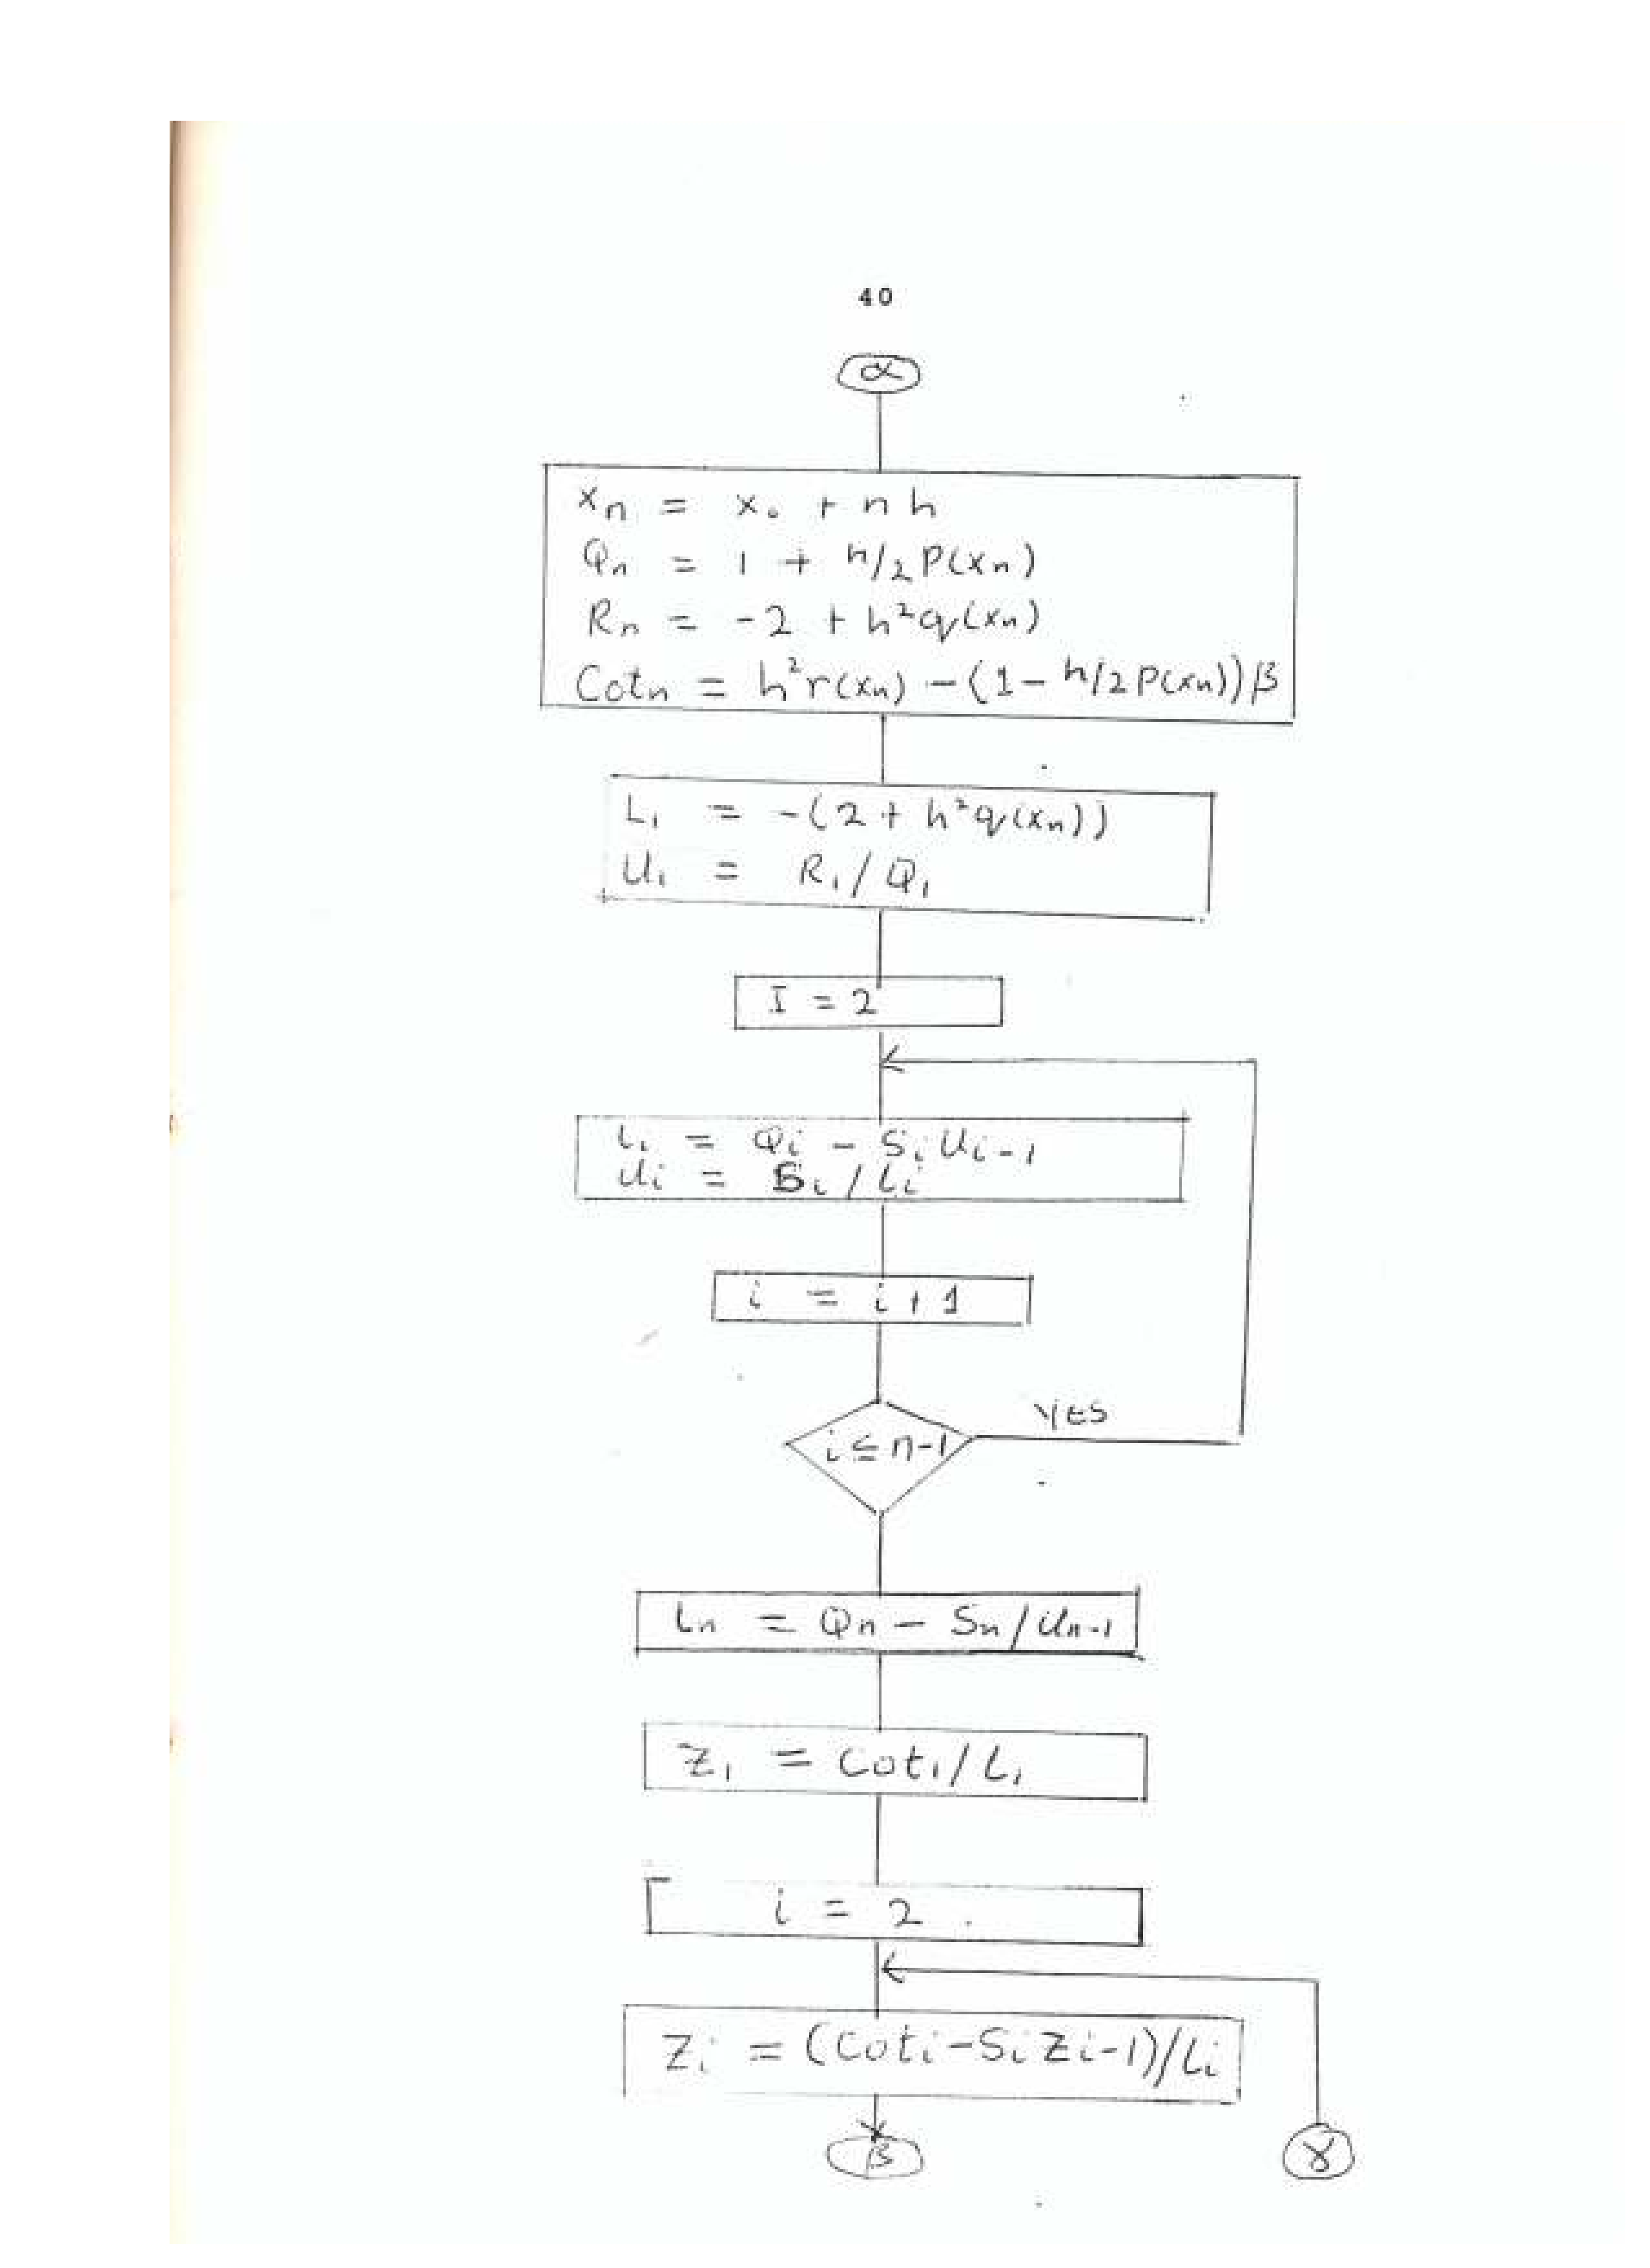 40
α
xₙ = x₀ + nh
Qₙ = 1 + h/2 P(xₙ)
Rₙ = -2 + h²q(xₙ)
Cotₙ = h²r(xₙ) - (1 - h/2 P(xₙ))β
L₁ = -(2 + h²q(xₙ))
U₁ = R₁/Q₁
I = 2
Lᵢ = Qᵢ - SᵢUᵢ₋₁
Uᵢ = Sᵢ/Lᵢ
i = i + 1
i ≤ n-1
YES
Lₙ = Qₙ - Sₙ/Uₙ₋₁
Z₁ = Cot₁/L₁
i = 2
Zᵢ = (Cotᵢ - SᵢZᵢ₋₁)/Lᵢ
β
γ